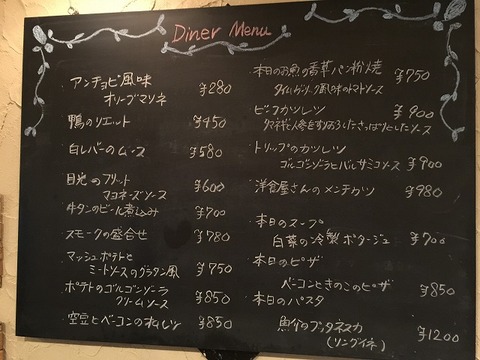 Diner Menu
アンチョビ風味
オリーブマリネ ¥280
鴨のリエット ¥450
白レバーのムース ¥580
目光のフリット
マヨネーズソース ¥600
牛タンのビール煮込み ¥700
スモークの盛合せ ¥780
マッシュポテトと
ミートソースのグラタン風 ¥750
ポテトのゴルゴンゾーラ
クリームソース ¥850
空豆とベーコンのオムレツ ¥850
本日のお魚の香草パン粉焼 ¥750
タイム、ガーリック風味のトマトソース
ビーフカツレツ ¥900
タマネギと人参をすりおろしたさっぱりとしたソース
トリップのカツレツ
ゴルゴンゾーラとバルサミコソース ¥900
洋食屋さんのメンチカツ ¥980
本日のスープ
白菜の冷製ポタージュ ¥700
本日のピザ
ベーコンときのこのピザ ¥850
本日のパスタ
魚介のプッタネスカ
(リングイネ) ¥1200